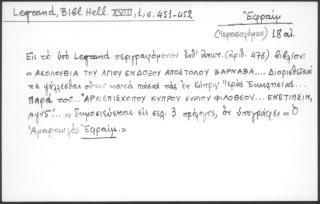 Legrand, Bibl. Hell. XVIII, 1, σ. 451-452
Ἐφραὶμ
(Ἱεροσολύμων) 18 αἰ.
Εἰς τὸ ὑπὸ Legrand περιγραφόμενον (ἀριθ. 476) βιβλίον:
« ΑΚΟΛΟΥΘΙΑ ΤΟΥ ΑΓΙΟΥ ΕΝΔΟΞΟΥ ΑΠΟΣΤΟΛΟΥ ΒΑΡΝΑΒΑ...
τε ψάλλεσθαι κατὰ πάσας τὰς ἐν Κύπρῳ Ἐκκλησίας...
ΠΑΡΑ ΤΟΥ... ΑΡΧΙΕΠΙΣΚΟΠΟΥ ΚΥΠΡΟΥ ΚΥΡΙΟΥ ΦΙΛΟΘΕΟΥ... ΕΝΕΤΙΗΣΙΝ,
» δημοσιεύεται εἰς σελ. 3 πρόλογος, ὃν ὑπογράφει « Ὁ
Ἁμαρτωλὸς Ἐφραίμ. »